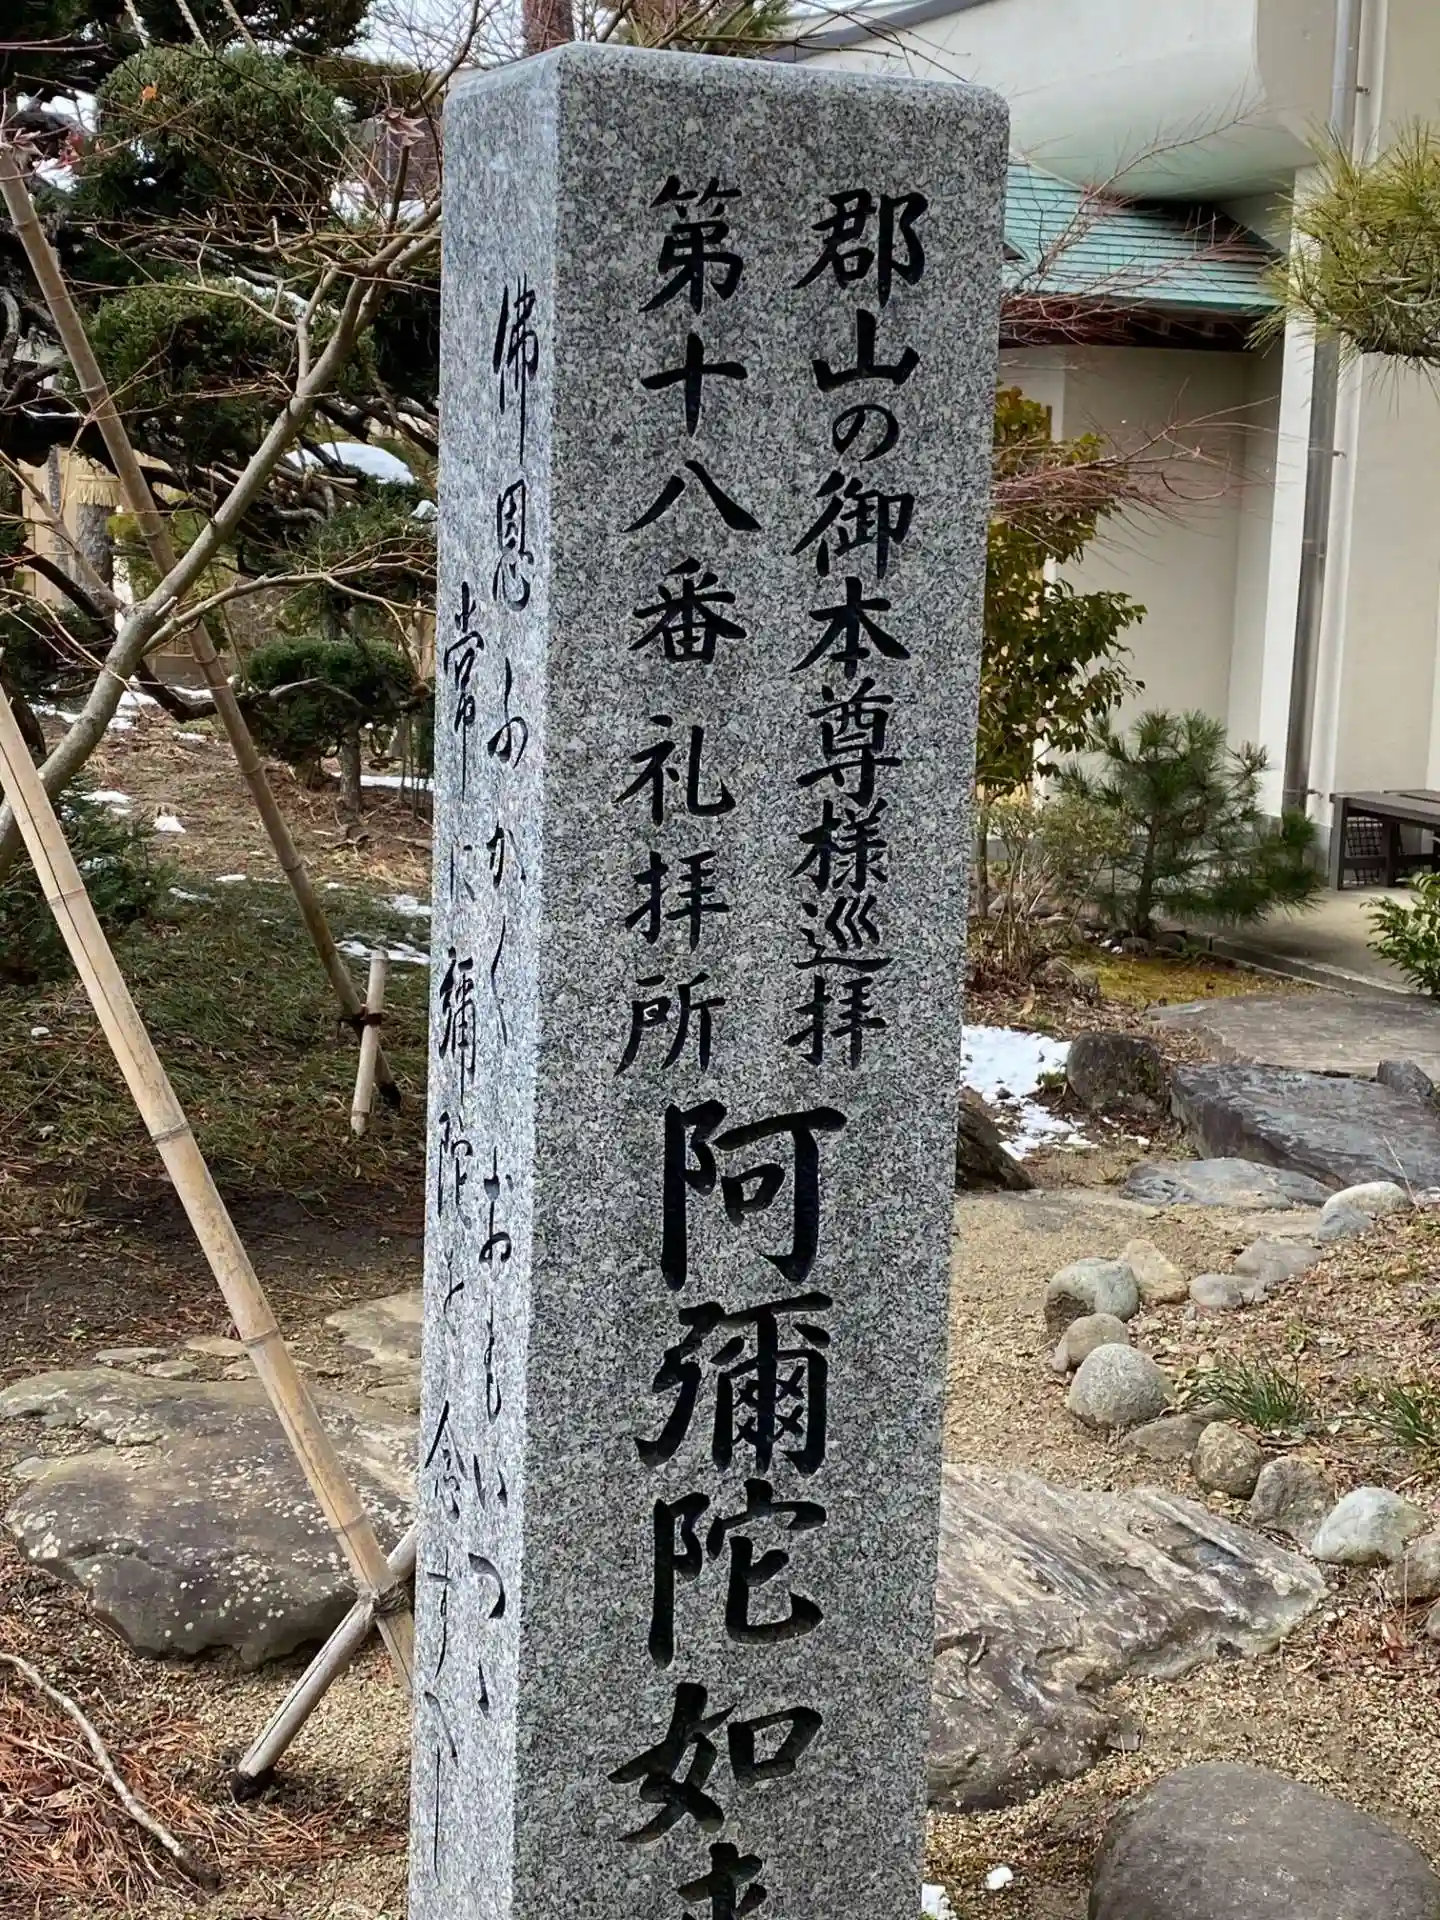 郡山の御本尊様巡拝
第十八番礼拝所
阿彌陀如来
佛恩のふかくおもいつゝ
常に彌陀を念ずべし